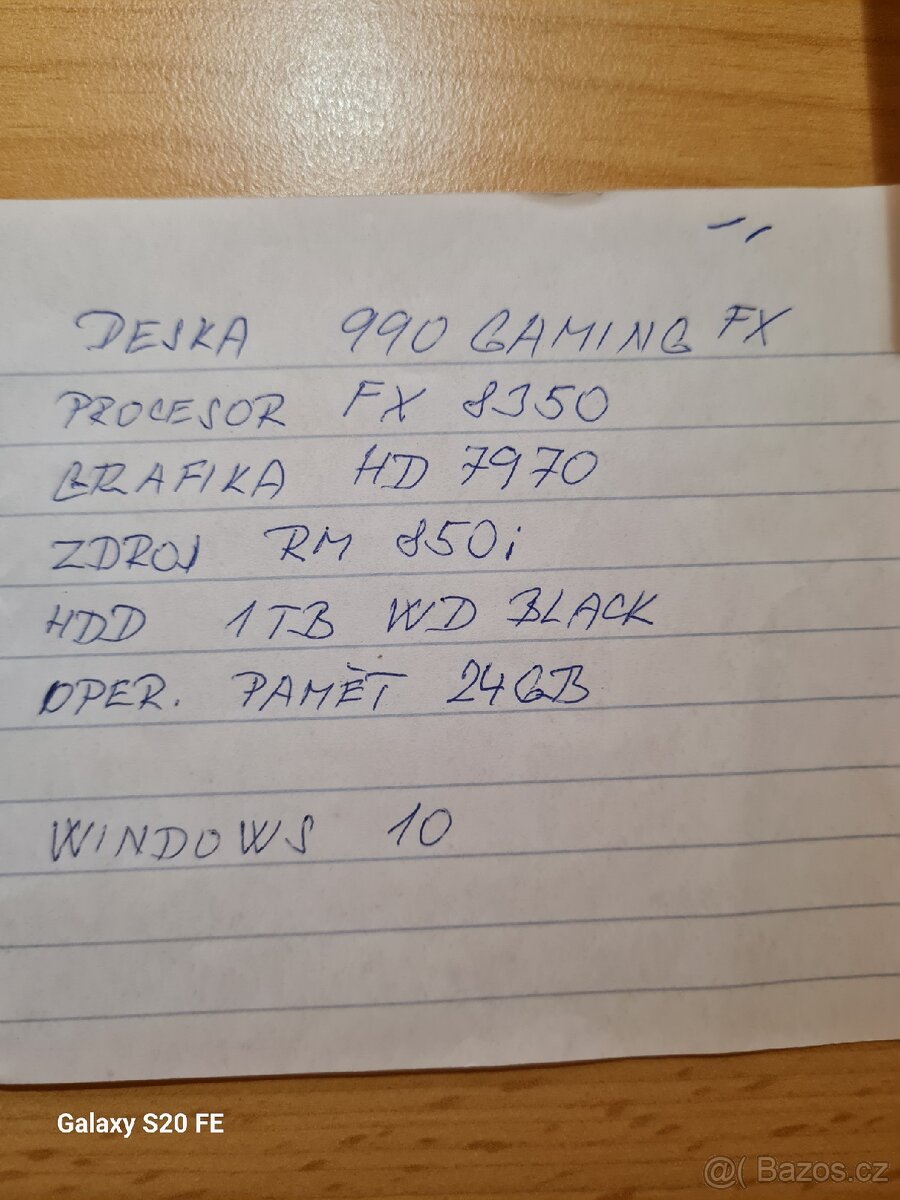 DESKA 990 GAMING FX
PROCESOR FX 8350
GRAFIKA HD 7970
ZDROJ RM 850i
HDD 1TB WD BLACK
OPER. PAMĚT 24GB
WINDOWS 10
Galaxy S20 FE
@( Bazos.cz